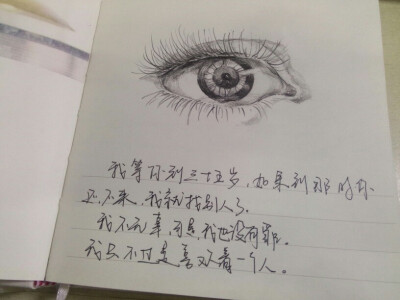 我等你到三十五岁，如果到那时你
还不来，我就找别人了。
我不无辜，可是，我也没有罪。
我只不过是喜欢着一个人。